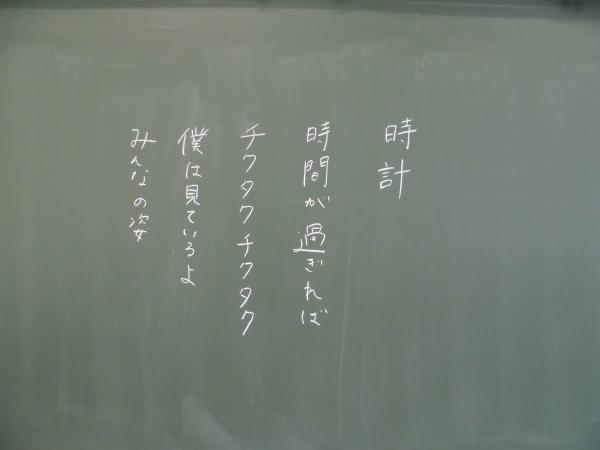 時計
時間が過ぎれば
チクタクチクタク
僕は見ているよ
みんなの姿